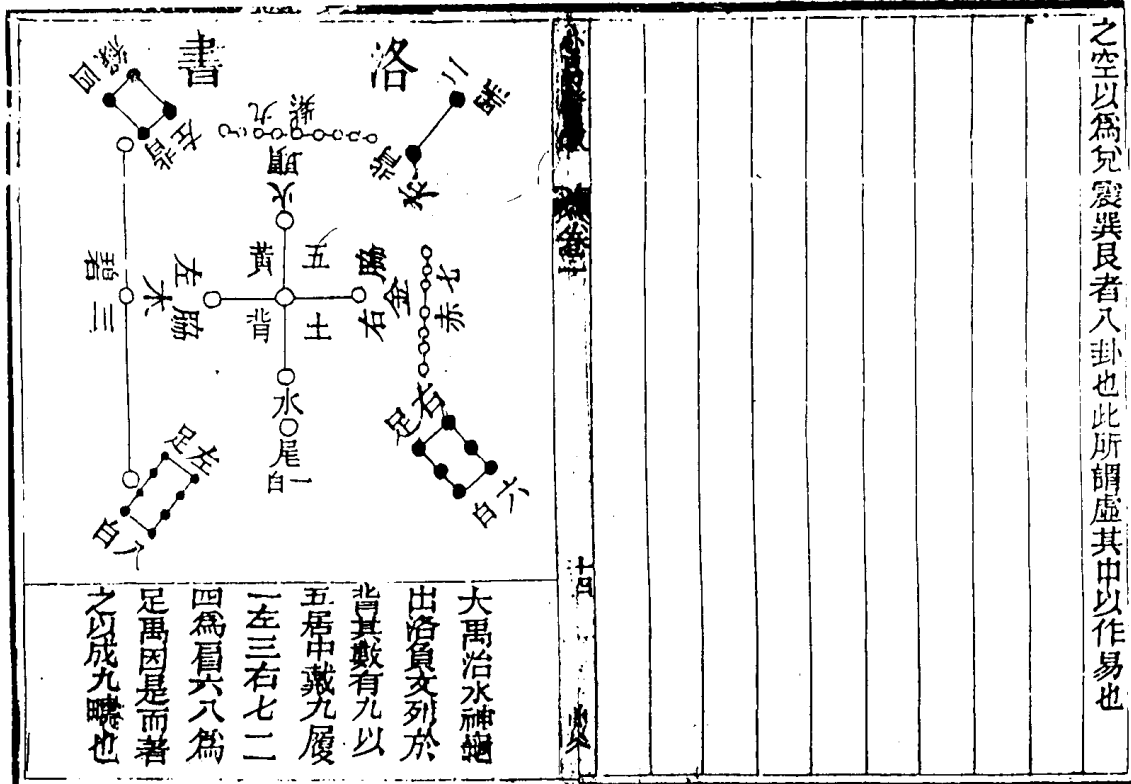 之空以爲兌震巽艮者八卦也此所謂虛其中以作易也
洛書
二黑
肩
九紫
頭
火
四綠
左肩
七赤
右脇
金
五黃
土
背
左脇
木
三碧
水
尾
一白
右足
六白
左足
八白
大禹治水神龜
出洛負文列於
背其數有九以
五居中戴九履
一左三右七二
四爲肩六八爲
足禹因是而著
之以成九疇也